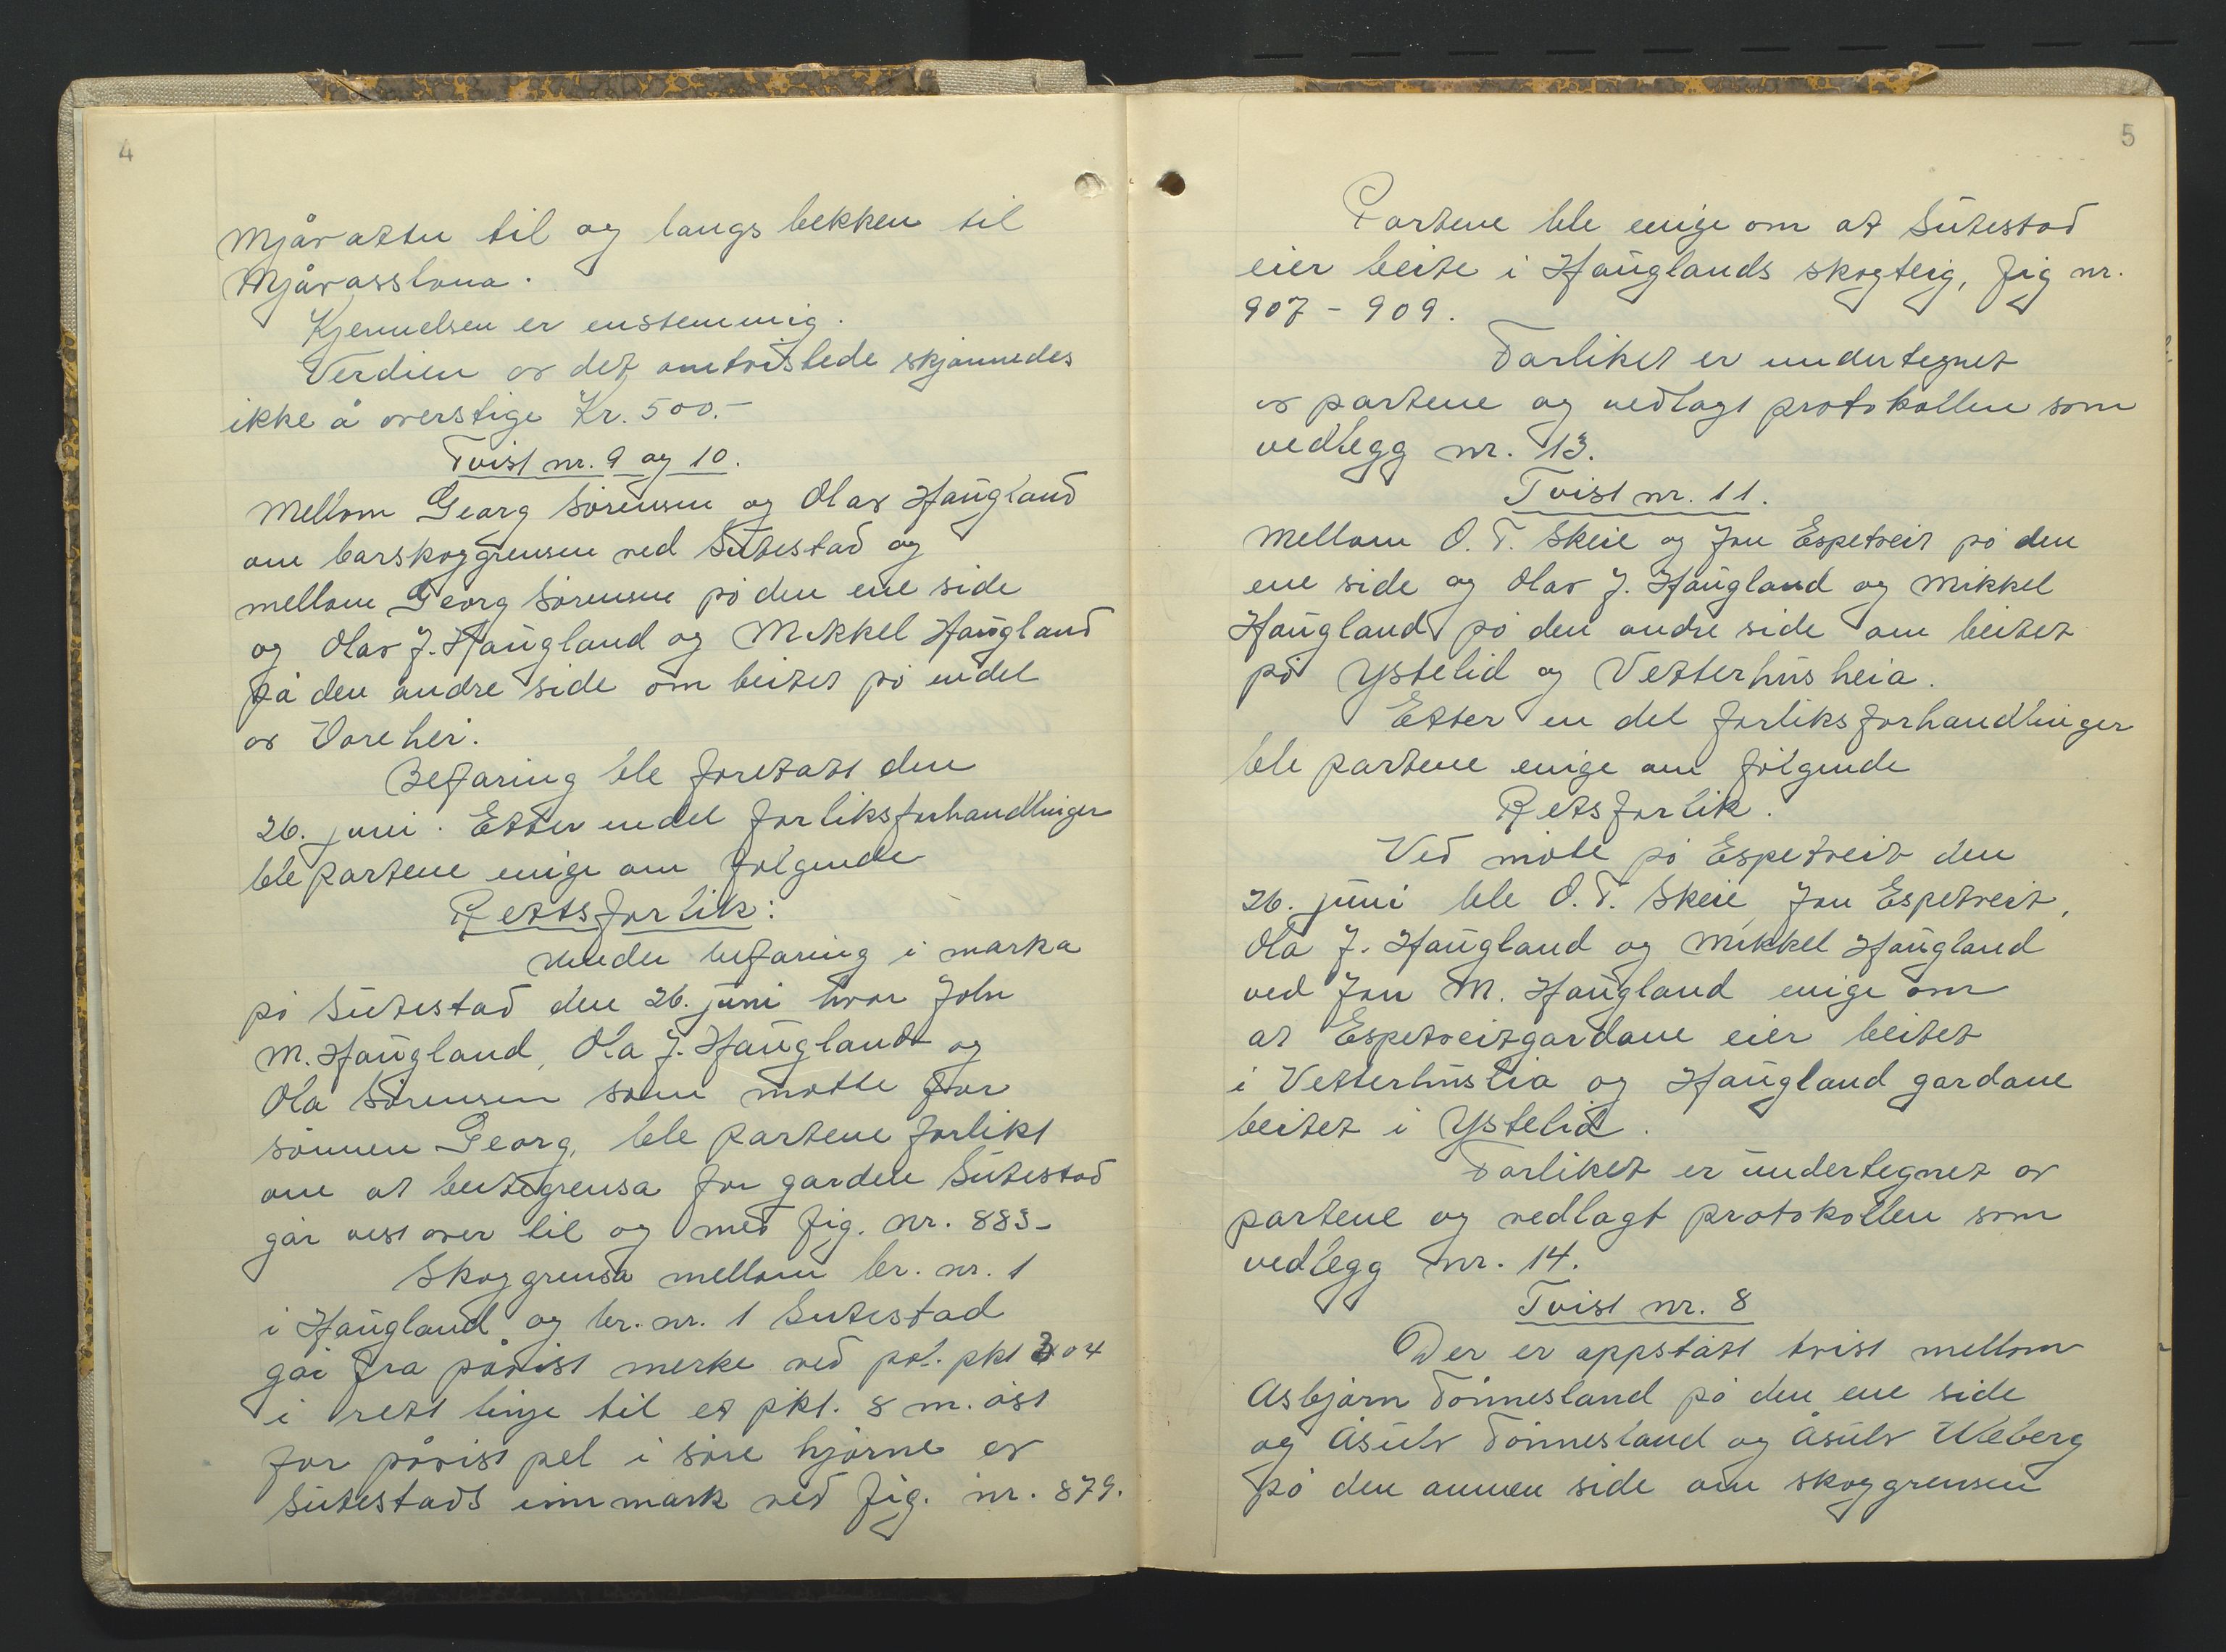 4
Mjåvatten til og langs bekken til
Mjåvasslona.
Kjennelsen er enstemmig.
Verdien av det omtvistede skjønnedes
ikke å overstige Kr. 500.-
Tvist nr. 9 og 10.
Mellom Georg Sørensen og Olav Haugland
om barskoggrensen ved Sutestad og
mellom Georg Sørensen på den ene side
og Olav J. Haugland og Mikkel Haugland
på den andre side om beitet på endel
av Vårehei.
Befaring ble foretatt den
26. juni. Etter endel forliksforhandlinger
ble partene enige om følgende
Rettsforlik:
Under befaring i marka
på Sutestad den 26. juni hvor John
M. Haugland, Ola J. Haugland og
Ola Sørensen som møtte for
sønnen Georg, ble partene forlikt
om at beitegrensa for garden Sutestad
går vestover til og med fig. nr. 883-
Skoggrensa mellom br. nr. 1
i Haugland og br. nr. 1 Sutestad
går fra påvist merke ved pol. pkt 304
i rett linje til et pkt. 8 m. øst
for påvist pel i søre hjørne av
Sutestads innmark ved fig. nr. 879.
5
Partene ble enige om at Sutestad
eier beite i Hauglands skogteig, fig nr.
907 - 909.
Forliket er undertegnet
av partene og vedlagt protokollen som
vedlegg nr. 13.
Tvist nr. 11.
Mellom O. T. Skeie og Jon Espetveit på den
ene side og Olav J. Haugland og Mikkel
Haugland på den andre side om beitet
på Ystelid og Vetterhusheia.
Etter en del forliksforhandlinger
ble partene enige om følgende
Retsforlik.
Ved møte på Espetveit den
26. juni ble O. T. Skeie, Jon Espetveit,
Ola J. Haugland og Mikkel Haugland
ved Jon M. Haugland enige om
at Espetveitgardane eier beitet
i Vetterhuslia og Haugland gardane
beitet i Ystelid.
Forliket er undertegnet av
partene og vedlagt protokollen som
vedlegg nr. 14.
Tvist nr. 8
Der er oppstått tvist mellom
Asbjørn Tønnesland på den ene side
og Åsulv Tønnesland og Åsulv Uleberg
på den annen side om skoggrensen